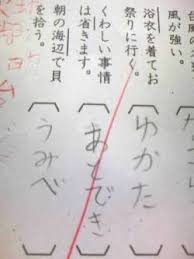 風が強い。
浴衣を着てお
祭りに行く。
くわしい事情
は省きます。
朝の海辺で貝
を拾う。
ゆかた
あとでき
うみべ